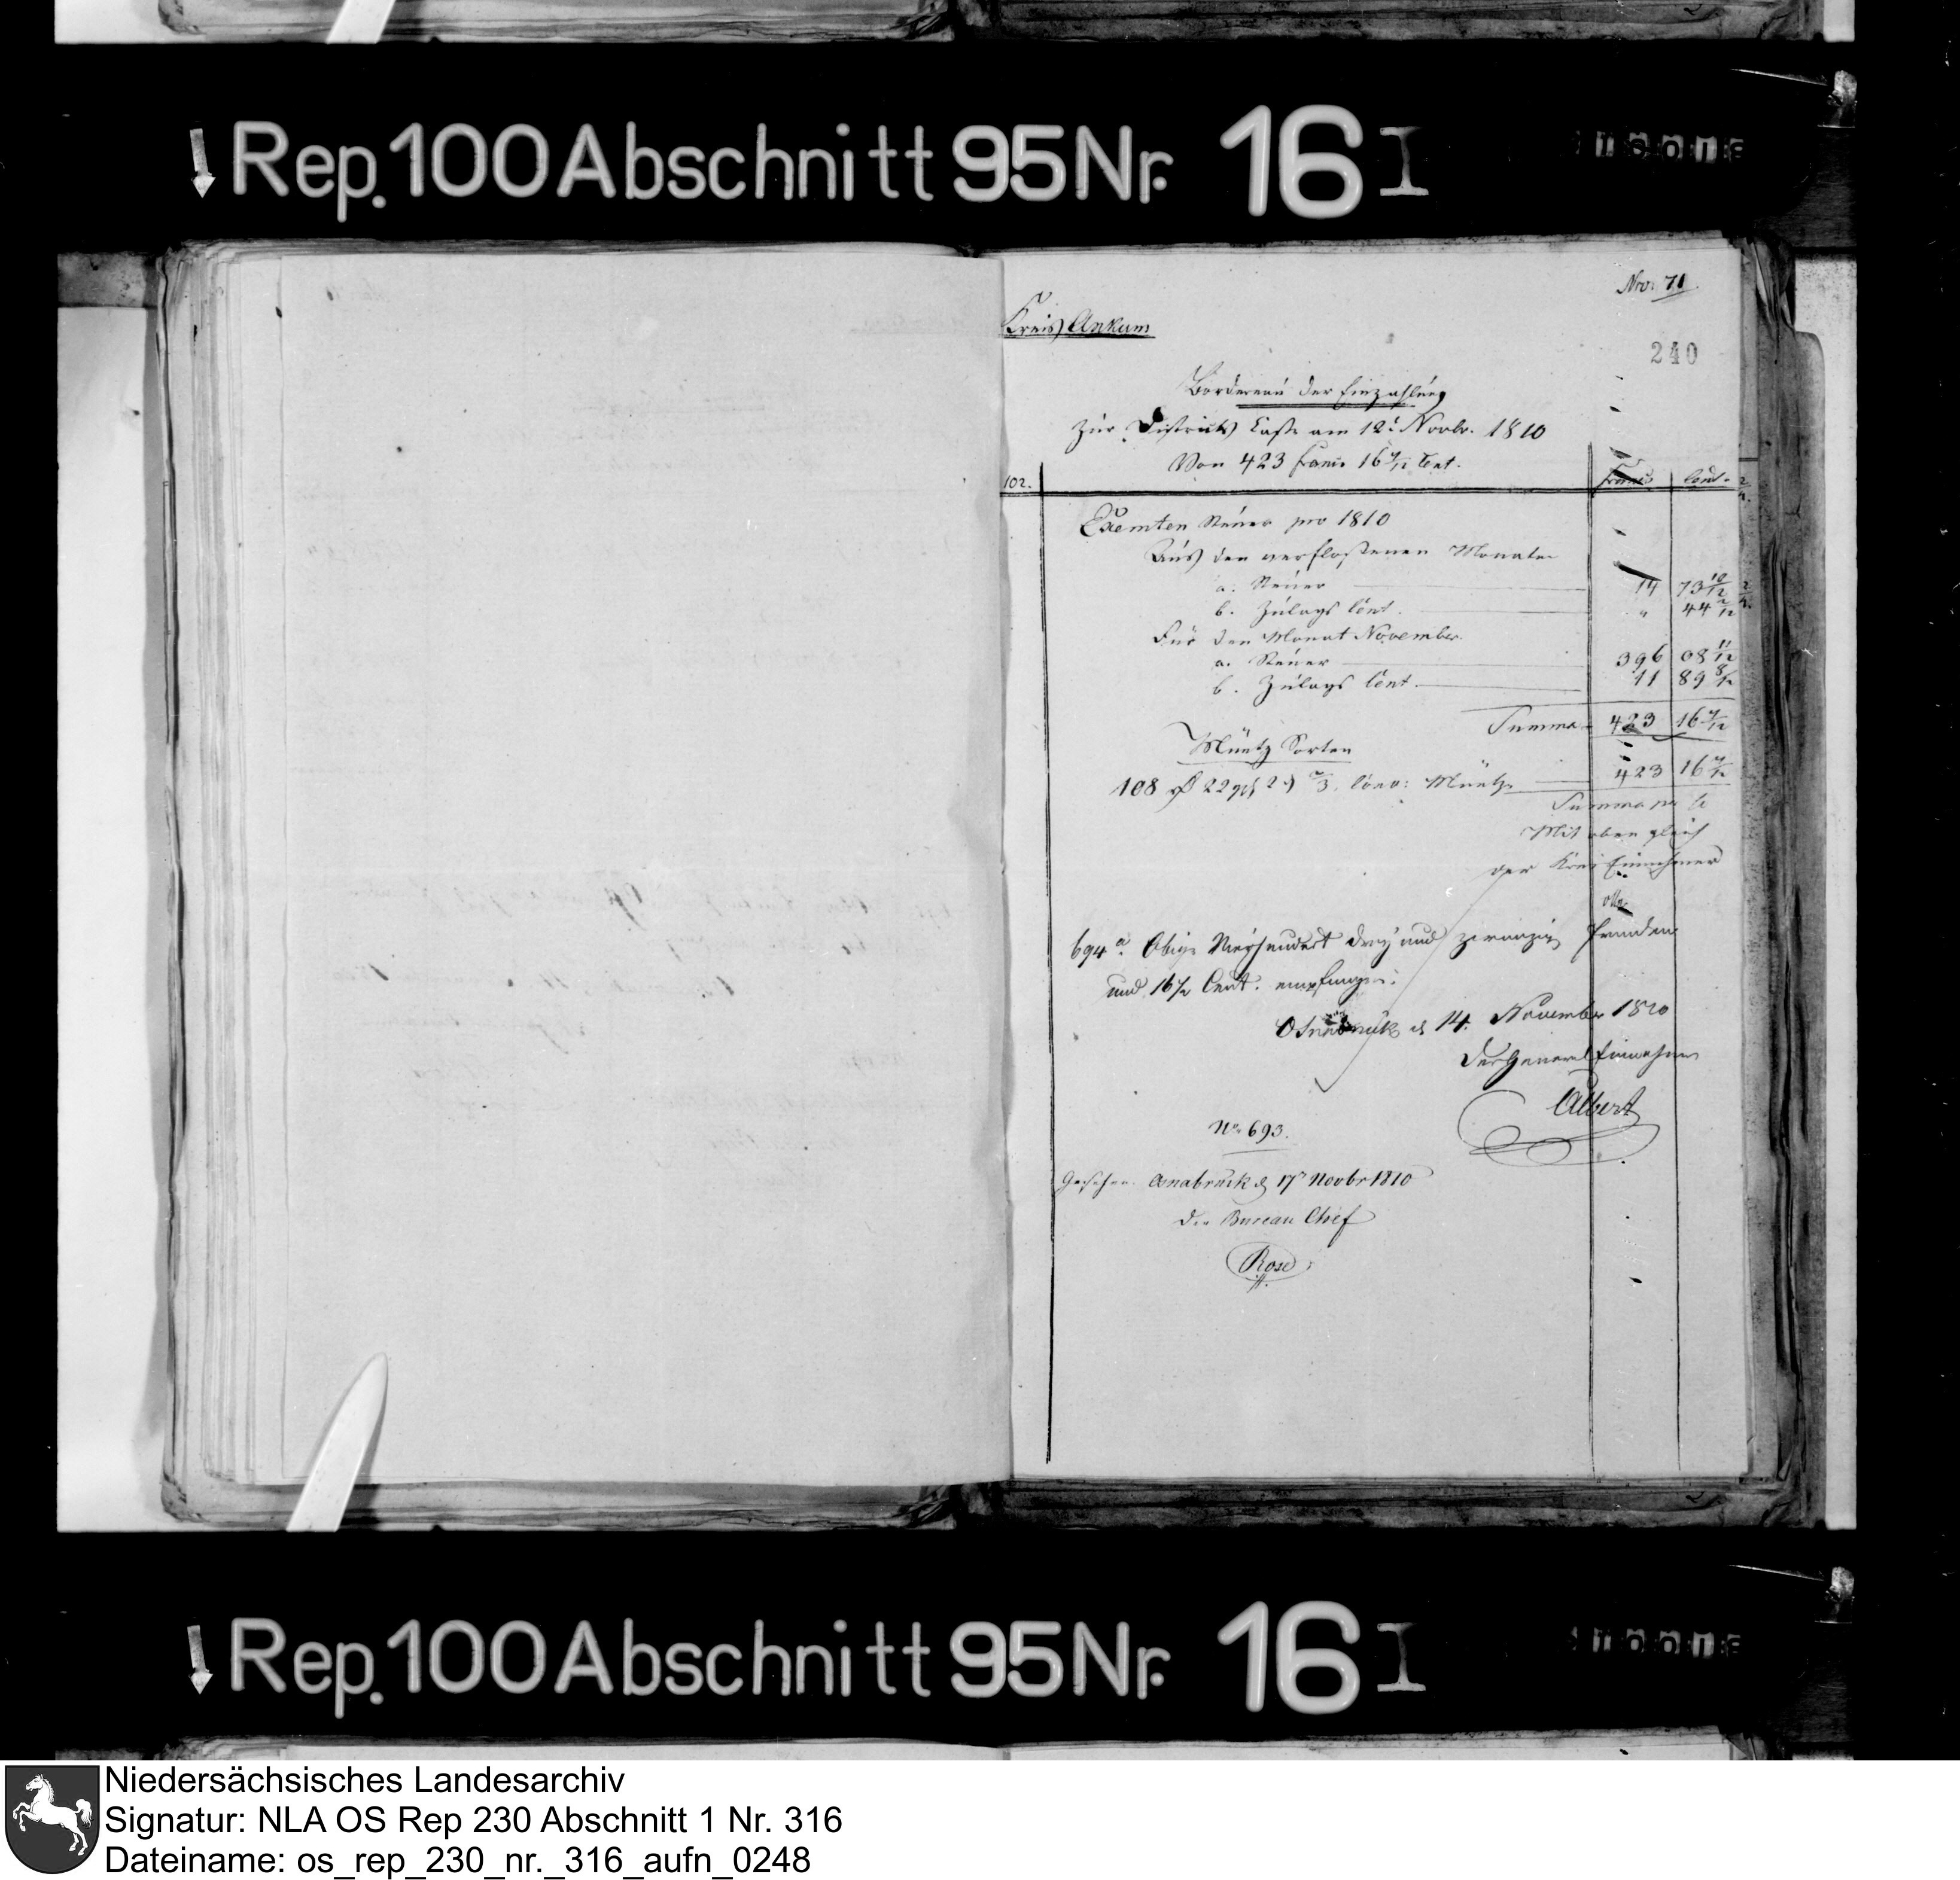 Rep. 100 Abschnitt 95 Nr. 16 I
Nro: 71.
240
Kreis Ankum
Bordereau der Einzahlung
zur Districts Casse am 12t Novbr. 1810
Von 423 Francs 16 7/12 Cent.
102.
Francs Cent.
Exemten Steuer pro 1810
Aus den verfloßenen Monaten
a. Steuer 14 73 10/12
b. Zulags Cent. " 44 2/12
Für den Monat November.
a. Steuer 396 08 11/12
b. Zulags Cent. 11 89 8/12
Summa 423 16 7/12
Müntz Sorten
108 22 2/3 Conv: Müntze 423 16 7/12
Summa
Mit oben gleich
der Kreis Einnehmer
694 a. Obige Vierhundert drey und zwanzig Franken
und 16 7/12 Cent. empfangen.
Osnabrück d 14. November 1810
Der General Einnehmer
Albert
No 693.
Gesehen. Osnabrück d 17 Novbr 1810
Der Bureau Chef
Rose
Rep. 100 Abschnitt 95 Nr. 16 I
Niedersächsisches Landesarchiv
Signatur: NLA OS Rep 230 Abschnitt 1 Nr. 316
Dateiname: os_rep_230_nr._316_aufn_0248